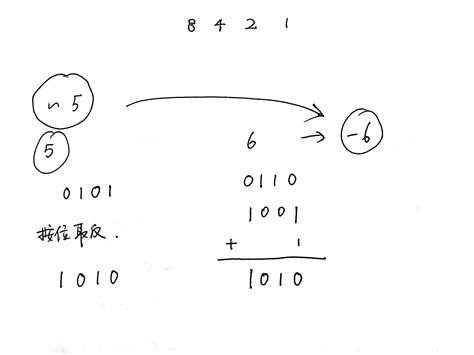 8 4 2 1
~5
5
0101
按位取反.
1010
6 → -6
0110
1001
+ 1
1010